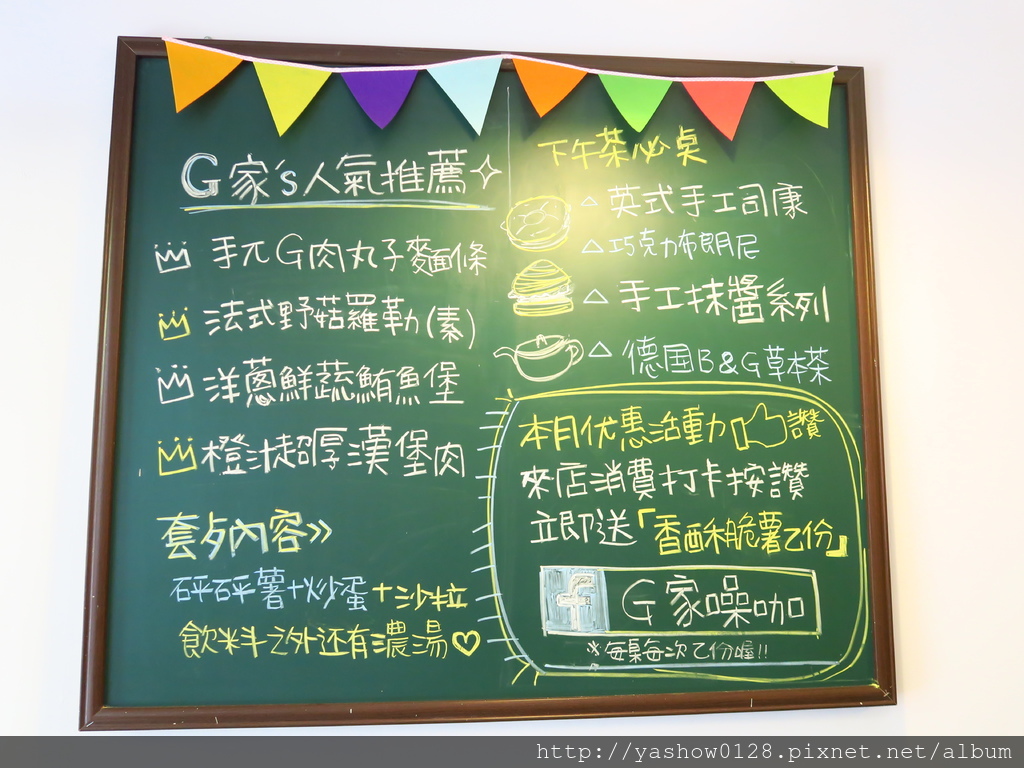 G家's人氣推薦
手工G肉丸子麵條
法式野菇羅勒(素)
洋蔥鮮蔬鮪魚堡
橙汁超厚漢堡肉
套歺內容»
砰砰薯+炒蛋+沙拉
飲料之外还有濃湯♡
下午茶必桌
△英式手工司康
△巧克力布朗尼
△手工抹醬系列
△德国B&G草本茶
本月优惠活動 讚
來店消費打卡按讚
立即送「香酥脆薯乙份」
f G家噪咖
※每桌每次乙份喔!!
http://yashow0128.pixnet.net/album